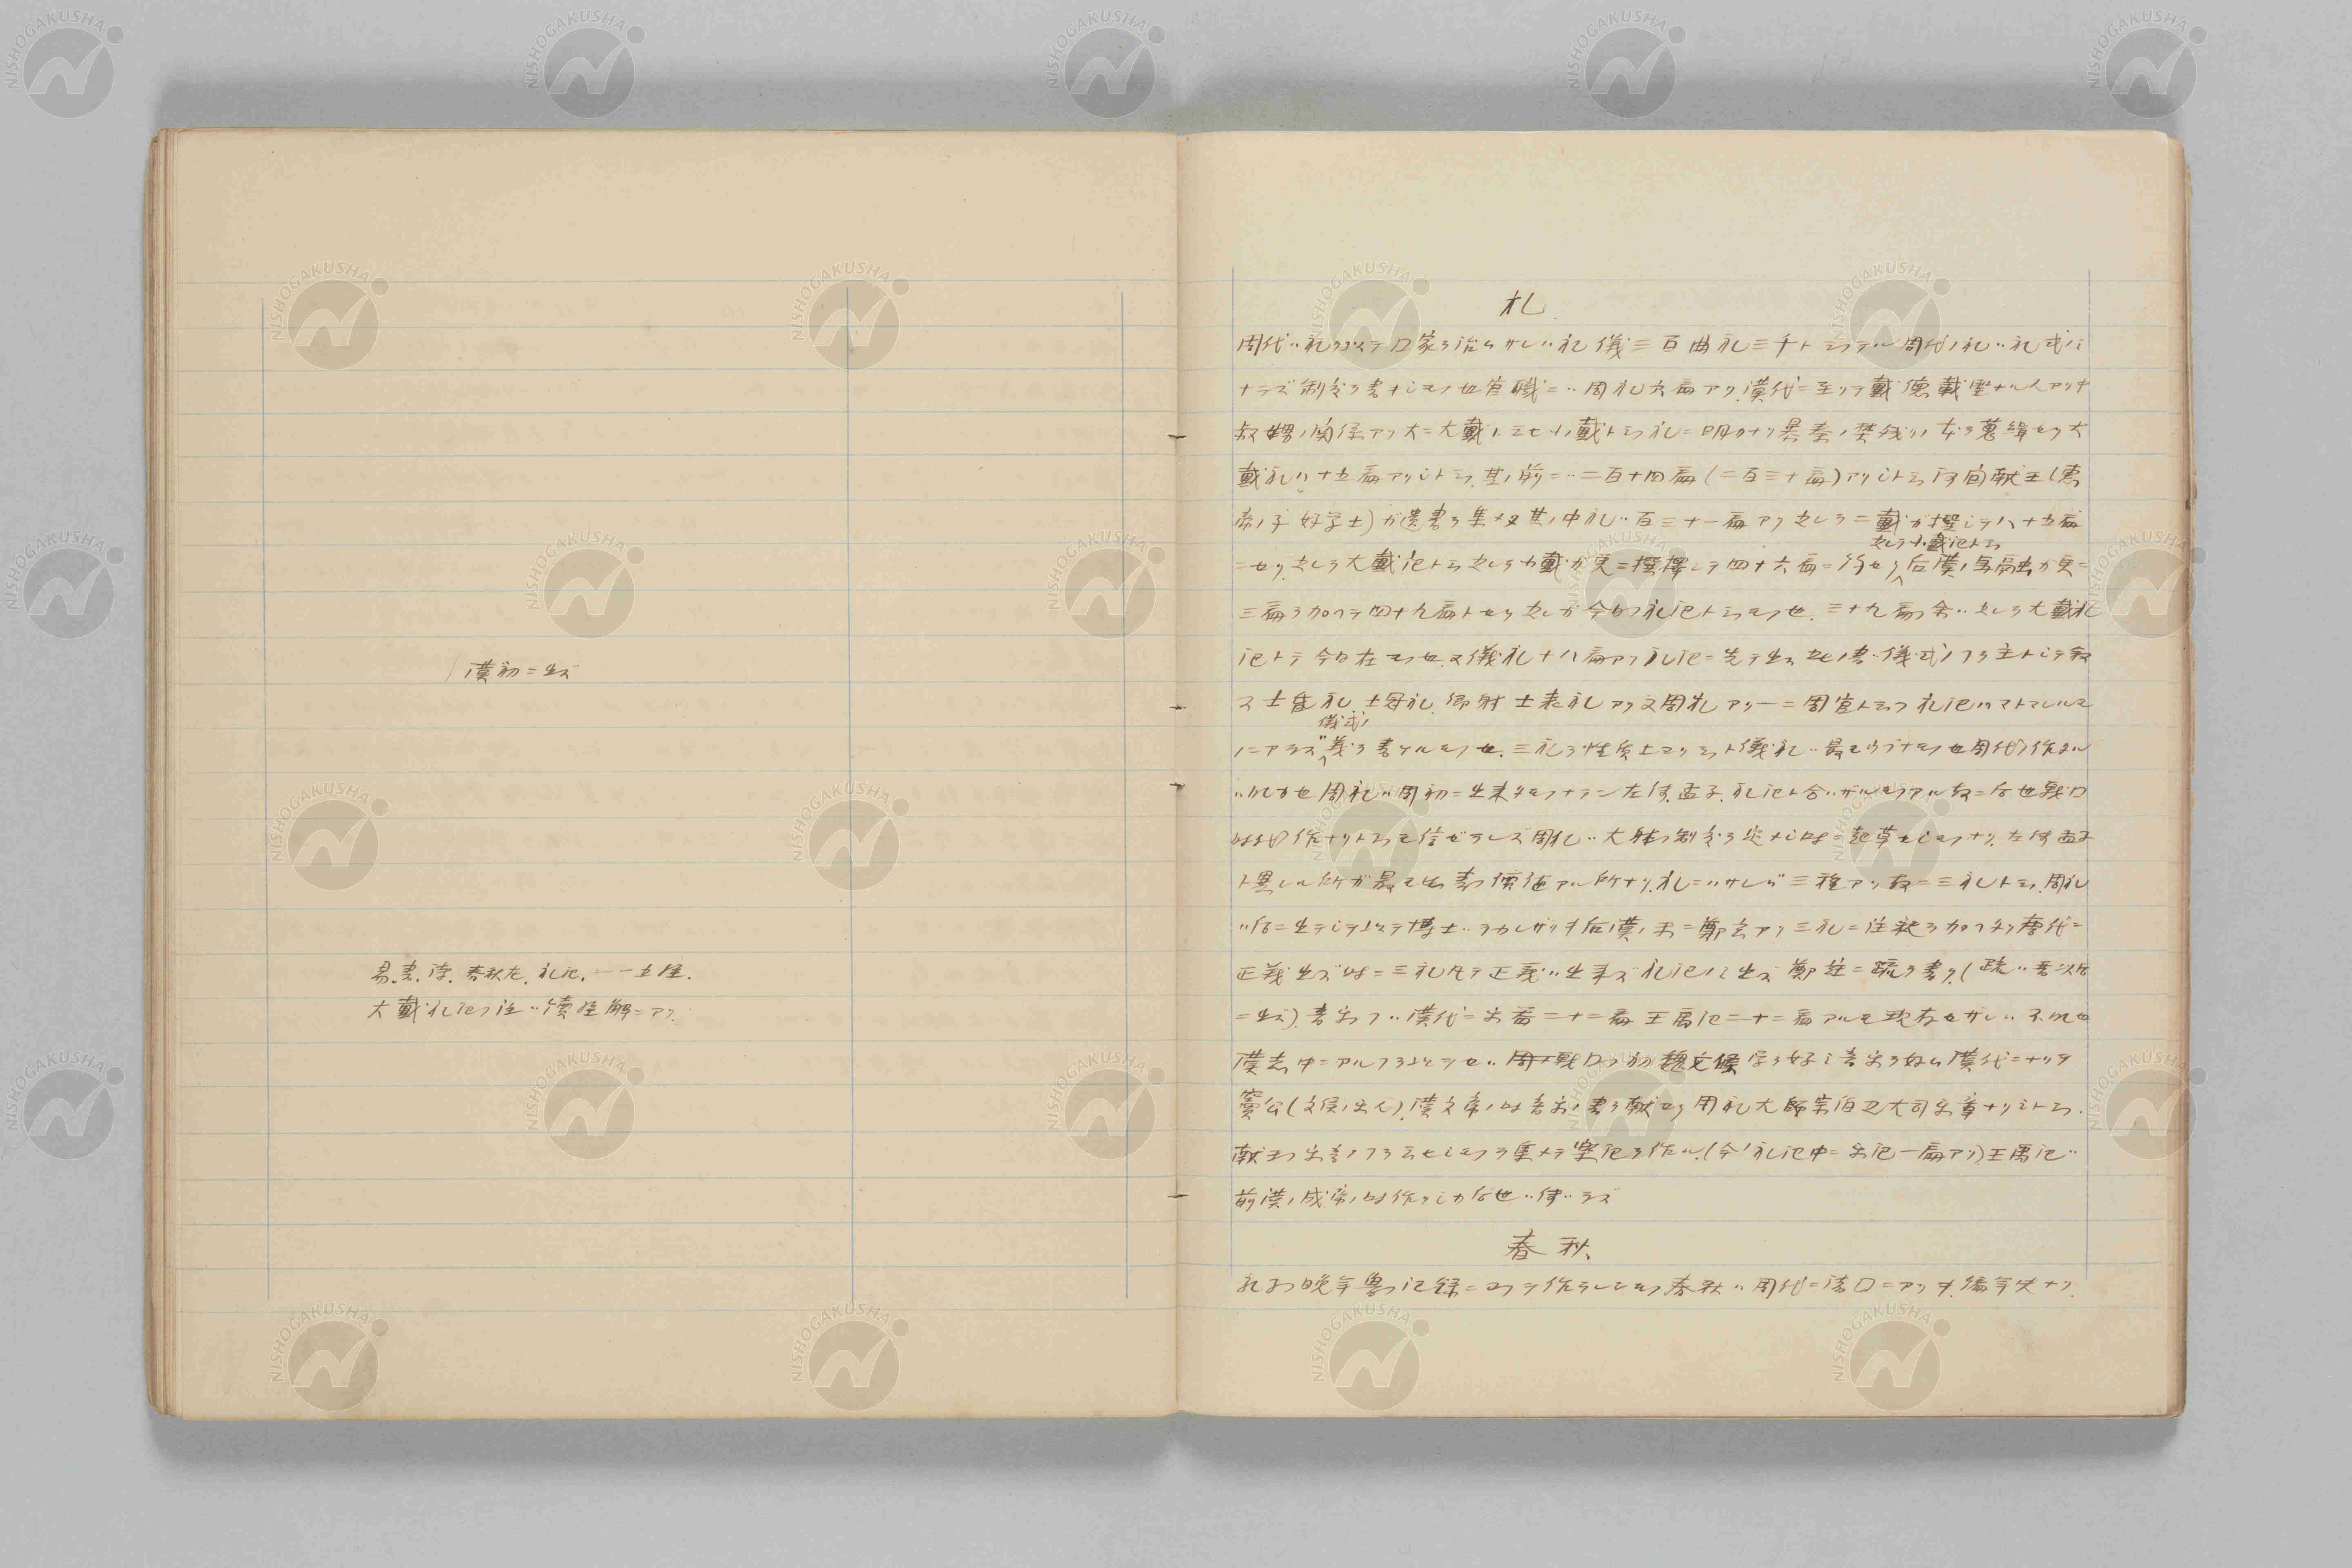 漢初ニ出ヅ
易.書.詩.春秋左.礼記.一一五経.
大戴礼記ノ注ハ續経解ニアリ.
礼.
周代ハ礼ヲ以テ囗家ヲ治ム サレハ礼儀三百曲礼三千ト云フテル周代ノ礼ハ礼式ノミ
ナラズ制令ヲ書キシモノ也官職ニハ周礼六扁アリ.漢代ニ至リテ戴德戴聖ナル人アリキ
叔甥ノ関係アリ大ニ大戴ト云ヒ小戴ト云フ礼ニ明カナリ暴秦ノ焚残リノ ヲ蒐緝セリ大
戴礼八十五扁アリシト云フ.其ノ前ニハ二百十四扁(二百三十扁)アリシト云フ河間献王(
帝ノ子好学士)ガ遺書ヲ集メヌ其ノ中礼ハ百三十一扁アリ之レヲ二戴ガ撰シテ八十五扁
之レヲ小戴記ト云フ
ニセリ.之レヲ大戴記ト云フ之レヲ小戴ガ更ニ撰擇シテ四十六扁ニ セリ后漢ノ馬融ガ更ニ
三扁ヲ加ヘテ四十九扁トセリ之レガ今日ノ礼記ト云フモノ也.三十九扁 ハ之レヲ大戴礼
記トテ今日在モノ也.又儀礼十八扁アリ礼記ニ先テ出ヅ 書ハ儀式ノ ヲ主トシテ叙
ス士昏礼.士冠礼.郷射士喪礼アリ又周礼アリ一ニ周官ト云フ礼記ハマトマレルモ
儀式ノ
ノニアラズ義ヲ書ケルモノ也.三礼ヲ性質上ヨリ云フト儀礼ハ最モ ナモノ也周代ノ作
也周礼ハ周初ニ出来タモノナラン左傳.孟子.礼記ト合ハザルモノアル故ニ后世戦囗
時代ノ作ナリト云フモ信ゼラレズ周礼ハ大体ノ制令ヲ定メシ時ニ起草セシモノナリ.左傳孟子
ト異レル所ガ最モ 書ノ價値アル所ナリ.礼ニハサレバ三種アリ故ニ三礼ト云フ.周礼
ハ后ニ出テシヲ以テ博士ハヲカレザリキ后漢ノ末ニ鄭玄アリ三礼ニ注釈ヲ加ヘタリ唐代ニ
正義出ヅ時ニ三礼凡テ正義ハ出来ズ礼記ノミ出ヅ鄭註ニ疏ヲ書ク.(疏ハ
ニ出ヅ).音楽ノ ハ漢代ニ楽 二十三扁王禹記二十二扁アルモ現存セザレハ不明也
漢志中ニアル ヲ セハ 戦囗ノ初魏文候学ヲ好ミ音楽ヲ好ム漢代ニナリテ
竇公(文侯ノ楽人).漢文帝ノ時音楽ノ書ヲ献セリ周礼大師宗伯ノ大司楽章ナリシト云フ.
献王ノ楽書ノ ヲ云ヒシモノヲ集メテ楽記ヲ作ル.(今ノ礼記中ニ楽記一扁アリ)王禹記ハ
前漢ノ成帝ノ時作リシガ后世ハ傳ハラズ
春秋
孔子ノ晩年魯ノ記録ニヨリテ作ラレシモノ春秋ハ周代ニ諸囗ニアリキ.編年史ナリ.